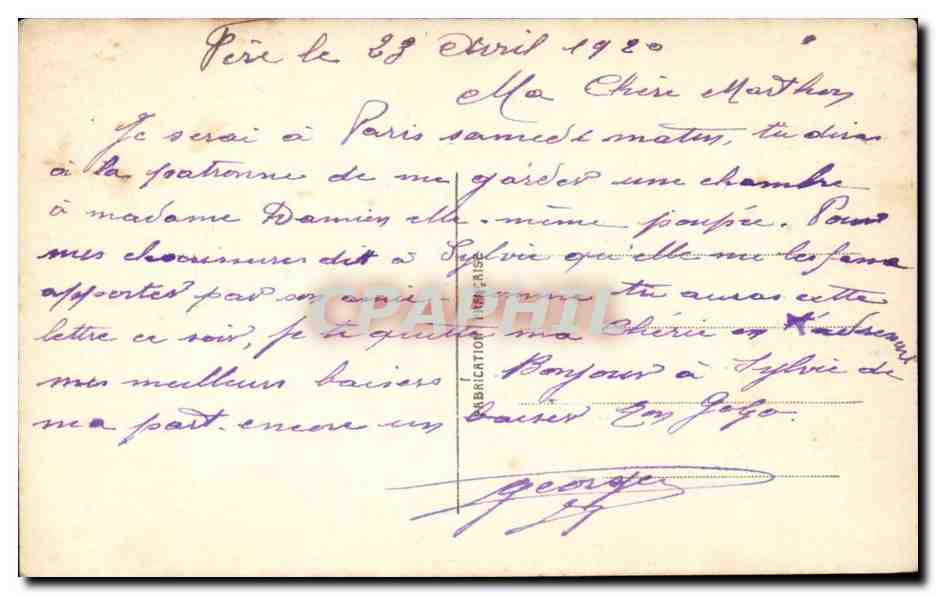 Fère le 23 Avril 1920
Ma Chère Marthon
Je serai à Paris samedi matin, tu diras
à la patronne de me garder une chambre
à madame Damien elle-même poupée. Pour
mes chaussures dit à Sylvie qu'elle me les fera
apporter par son amie comme tu auras cette
lettre ce soir, je te quitte ma Chérie en t'adressant
mes meilleurs baisers Bonjour à Sylvie de
ma part. encore un baiser Ton Gogo
Georges
FABRICATION FRANÇAISE
CPAPHIL